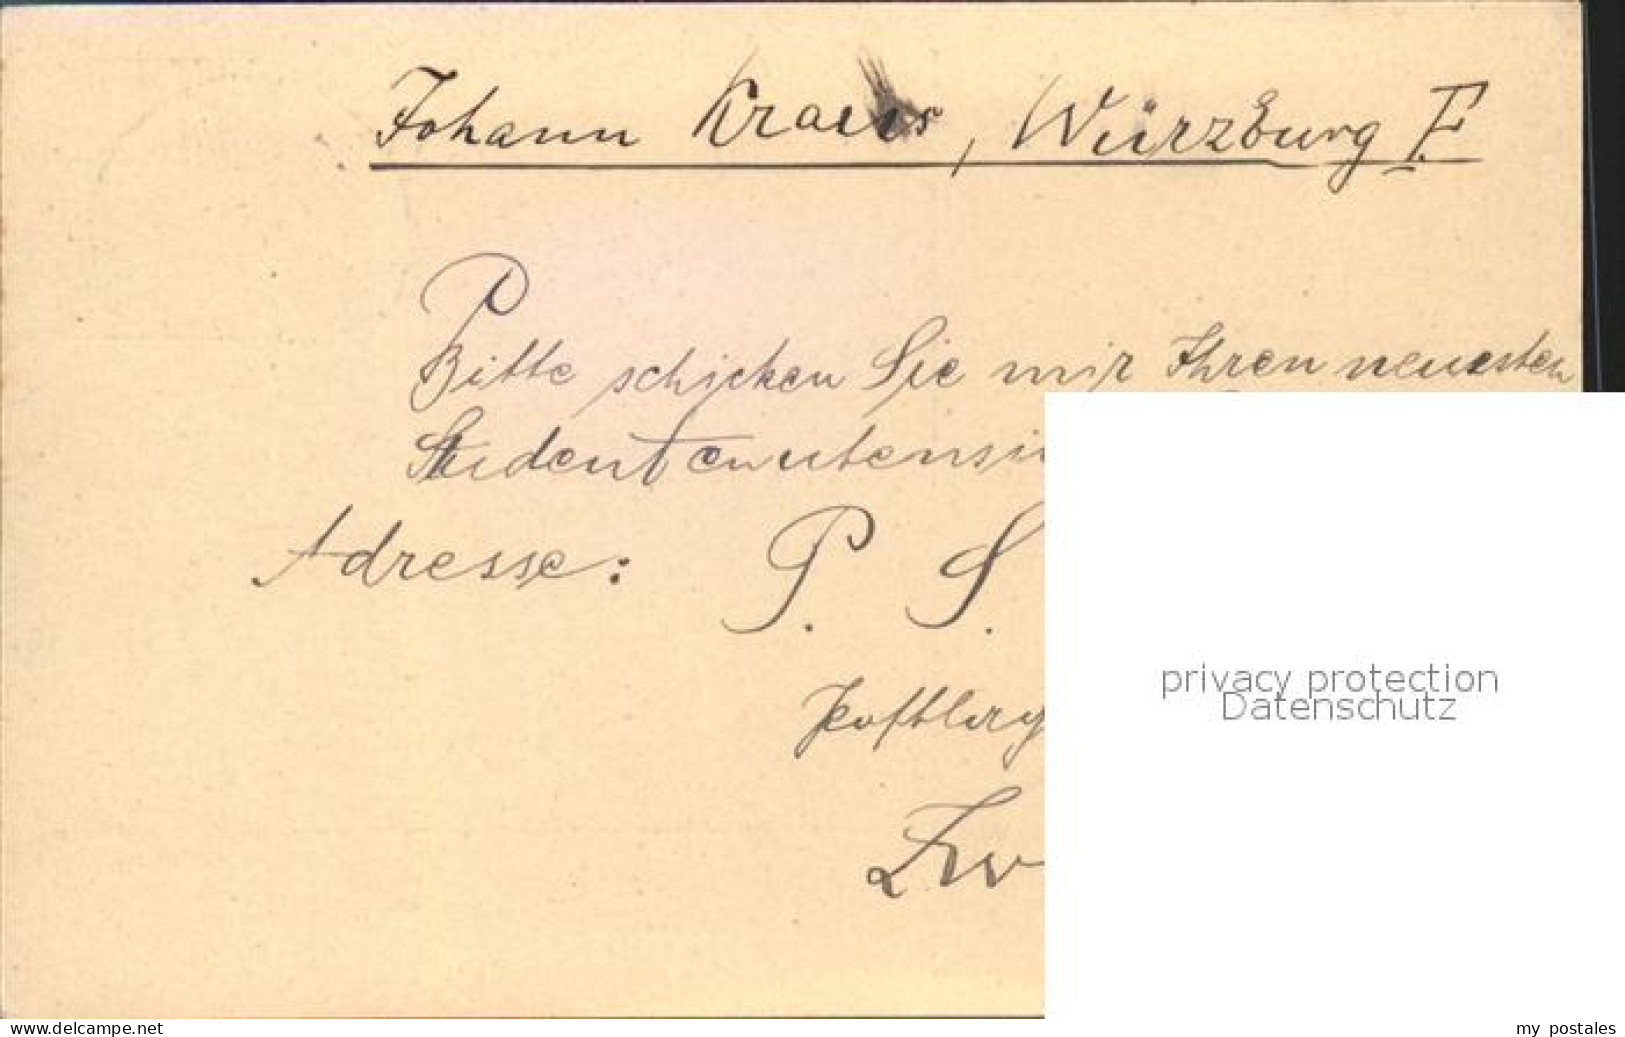 Johann Kraus, Würzburg F.
P
Bitte schicken Sie mir Ihren neuesten
Studentenutensi
Adresse: P. S.
Postlag
Zw
privacy protection
Datenschutz
www.delcampe.net
my_postales